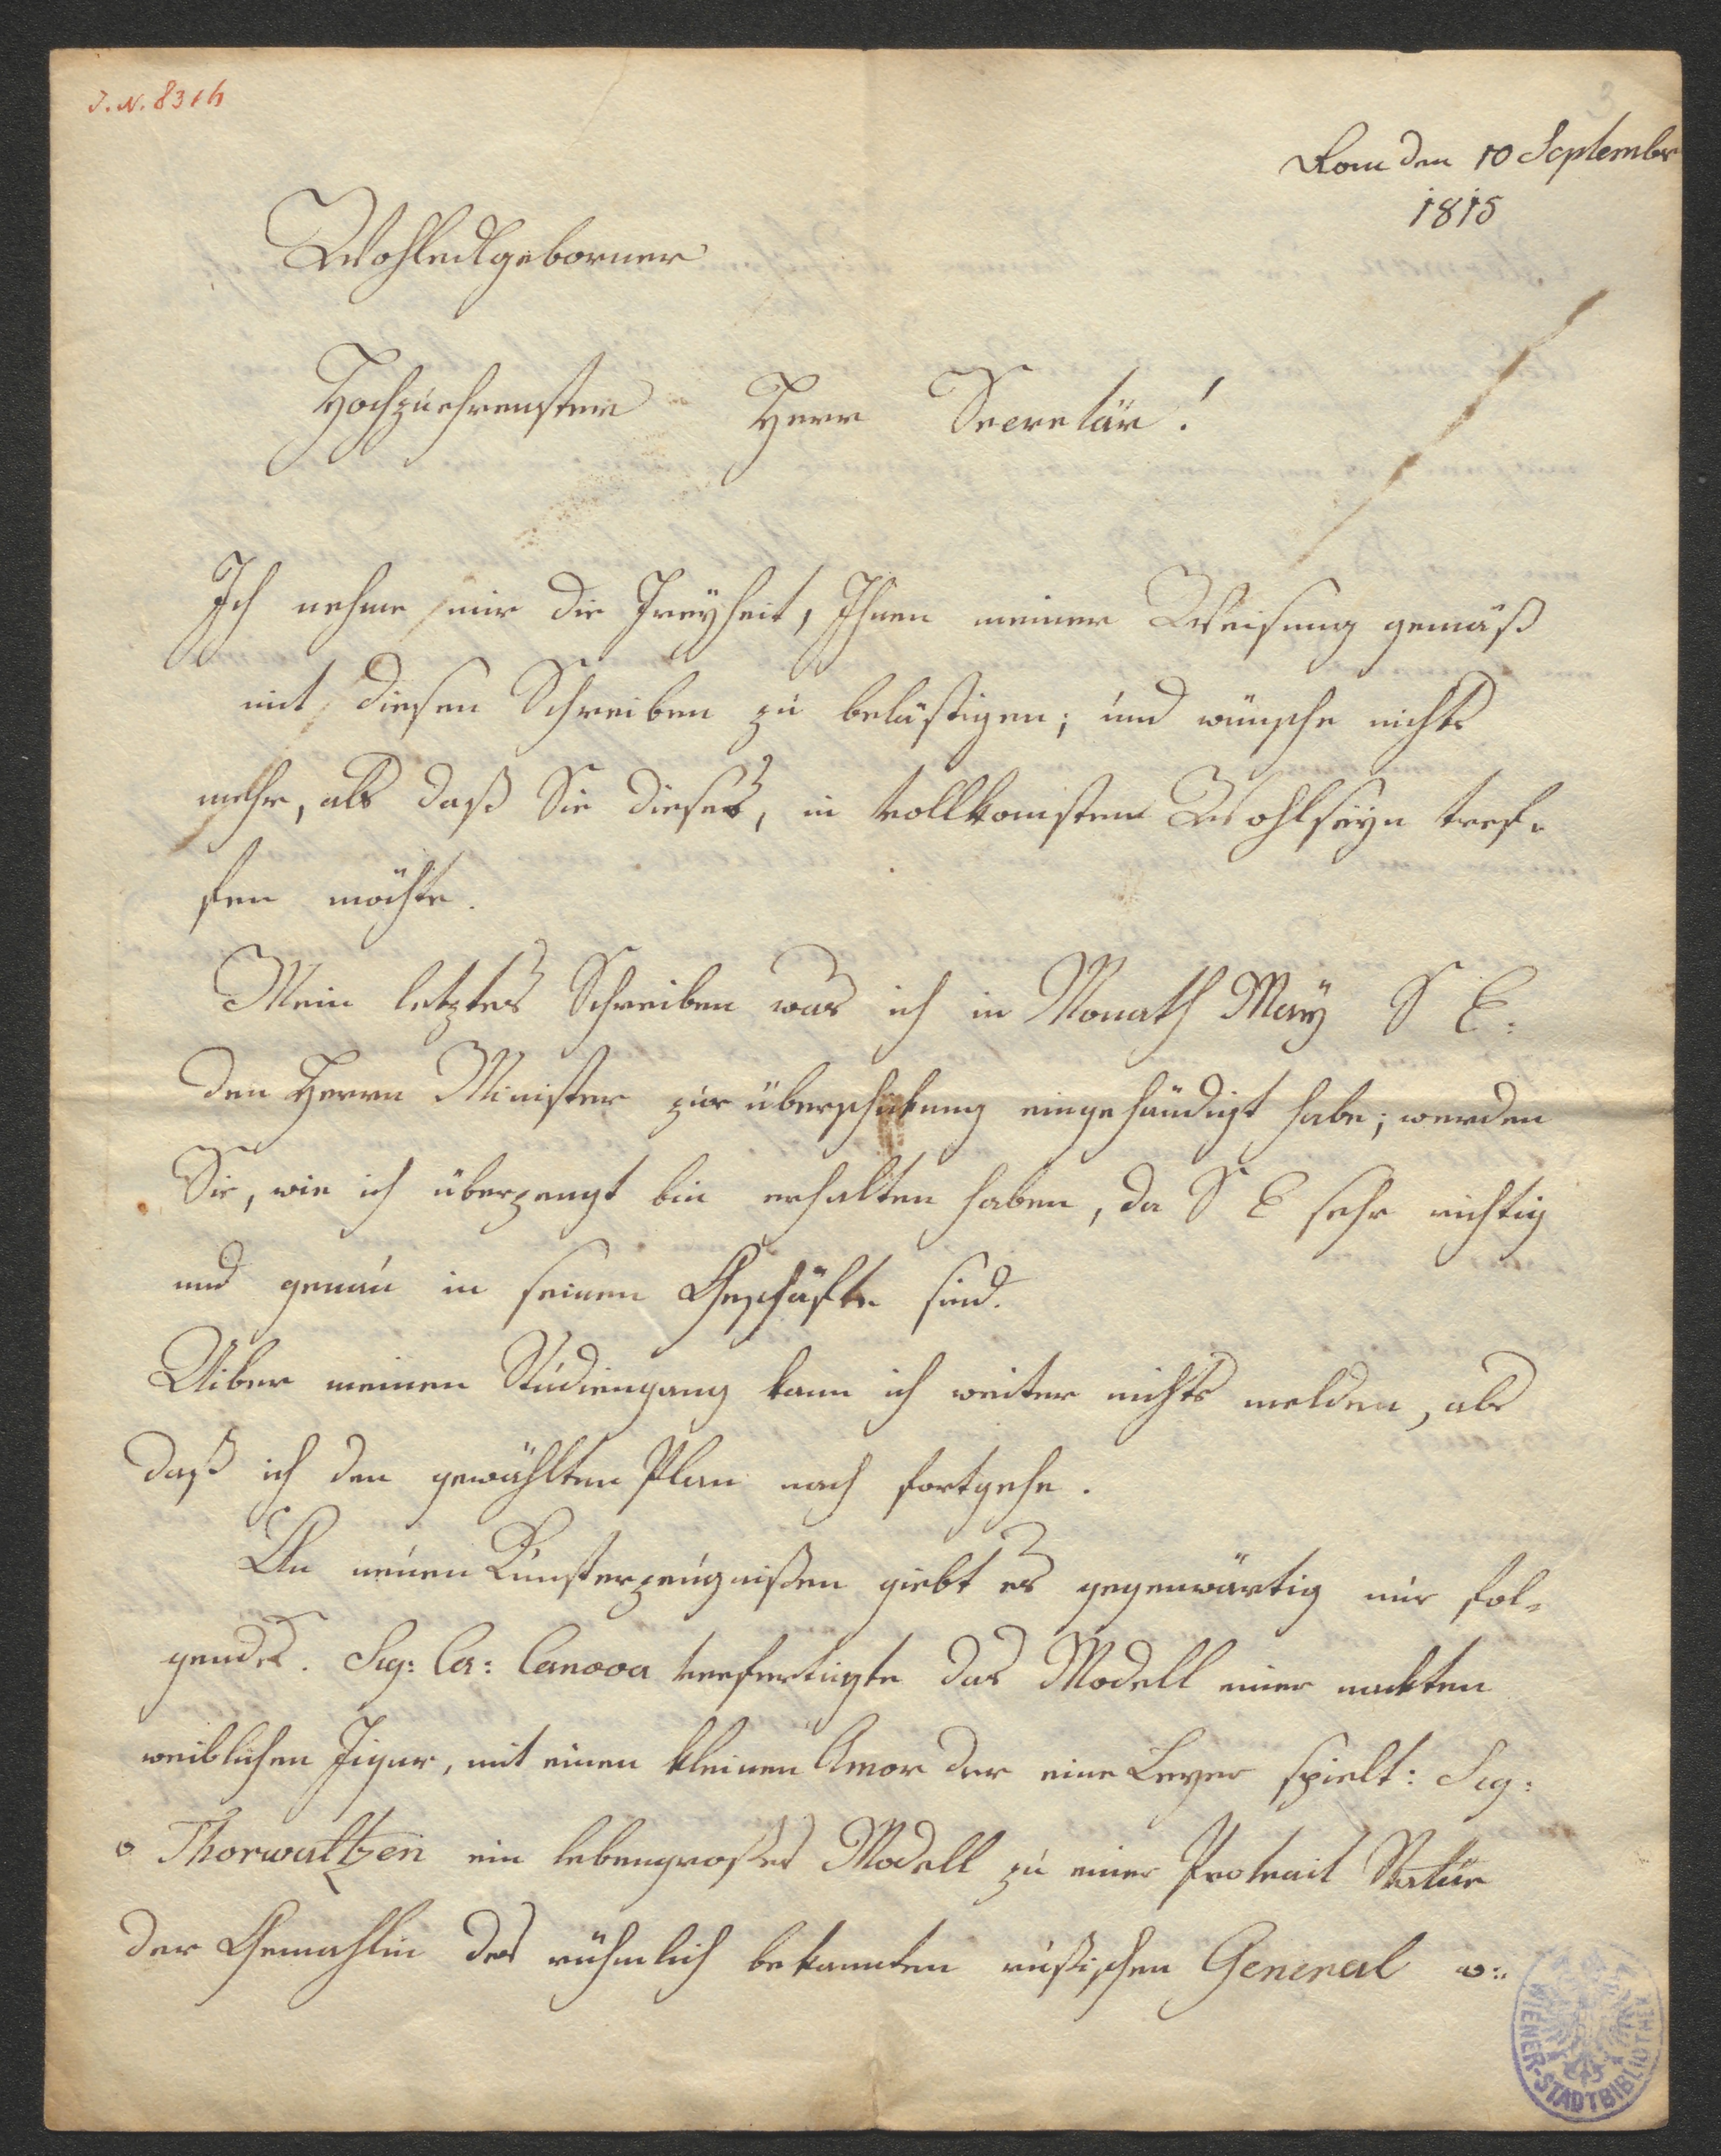 J. N. 8316
3
Rom den 10 September
1815
Wohledlgeborner
Hochzuehrenster Herr Secretär!
Ich nehme mir die Freyheit, Ihnen meiner Weisung gemäß
mit diesen Schreiben zu belästigen; und wünsche nichts
mehr, als daß Sie dieses, in vollkomsten Wohlseyn tref-
fen möchte.
Mein letztes Schreiben was ich in Monath May S E:
den Herrn Minister zur überschikung eingehändigt habe; werden
Sie, wie ich überzeugt bin erhalten haben, da S E sehr richtig
und genau in seinen Geschäfte sind.
Uiber meinen Studiengang kann ich weiter nichts melden, als
daß ich den gewählten Plan nach fortgehe.
An neuen Kunsterzeugnißen giebt es gegenwärtig nur fol-
gendes. Sig: Ca: Canova verfertigte das Modell einer nackten
weiblichen Figur, mit einen kleinen Amor der eine Leyer spielt: Sig:
v Thorwaltzen ein lebengroßes Modell zu einer Protrait Statüe
der Gemahlin des rühmlich bekannten rußischen General v:
WIENER-STADTBIBLIOTHEK